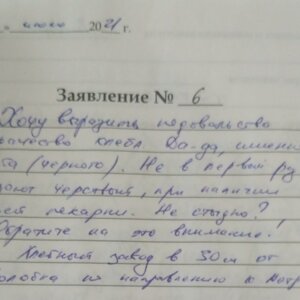 июля 2021 г.
Заявление № 6
Хочу выразить недовольство
качество хлеба Да-да, именно
(черного). Не в первый раз
черствый, при наличии
пекарни. Не стыдно?
Обратите на это внимание!
Хлебный завод в 50 км от
по направлению к